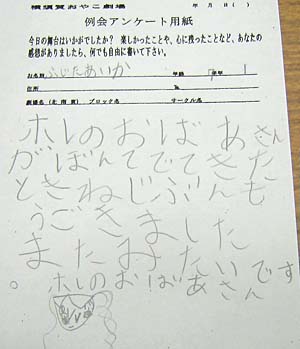 横須賀おやこ劇場
年 月 日( )
例会アンケート用紙
今日の舞台はいかがでしたか? 楽しかったことや、心に残ったことなど、あなたの
感想がありましたら、何でも自由に書いて下さい。
お名前 ふじたあいか 学齢 1年 1
住所 ℡
劇場名(北 南 東) ブロック名 サークル名
ホレのおばあさん
がぼんてでてきた
ときねじぶんも
うごきました
またみたい
。ホレのおばあさんです